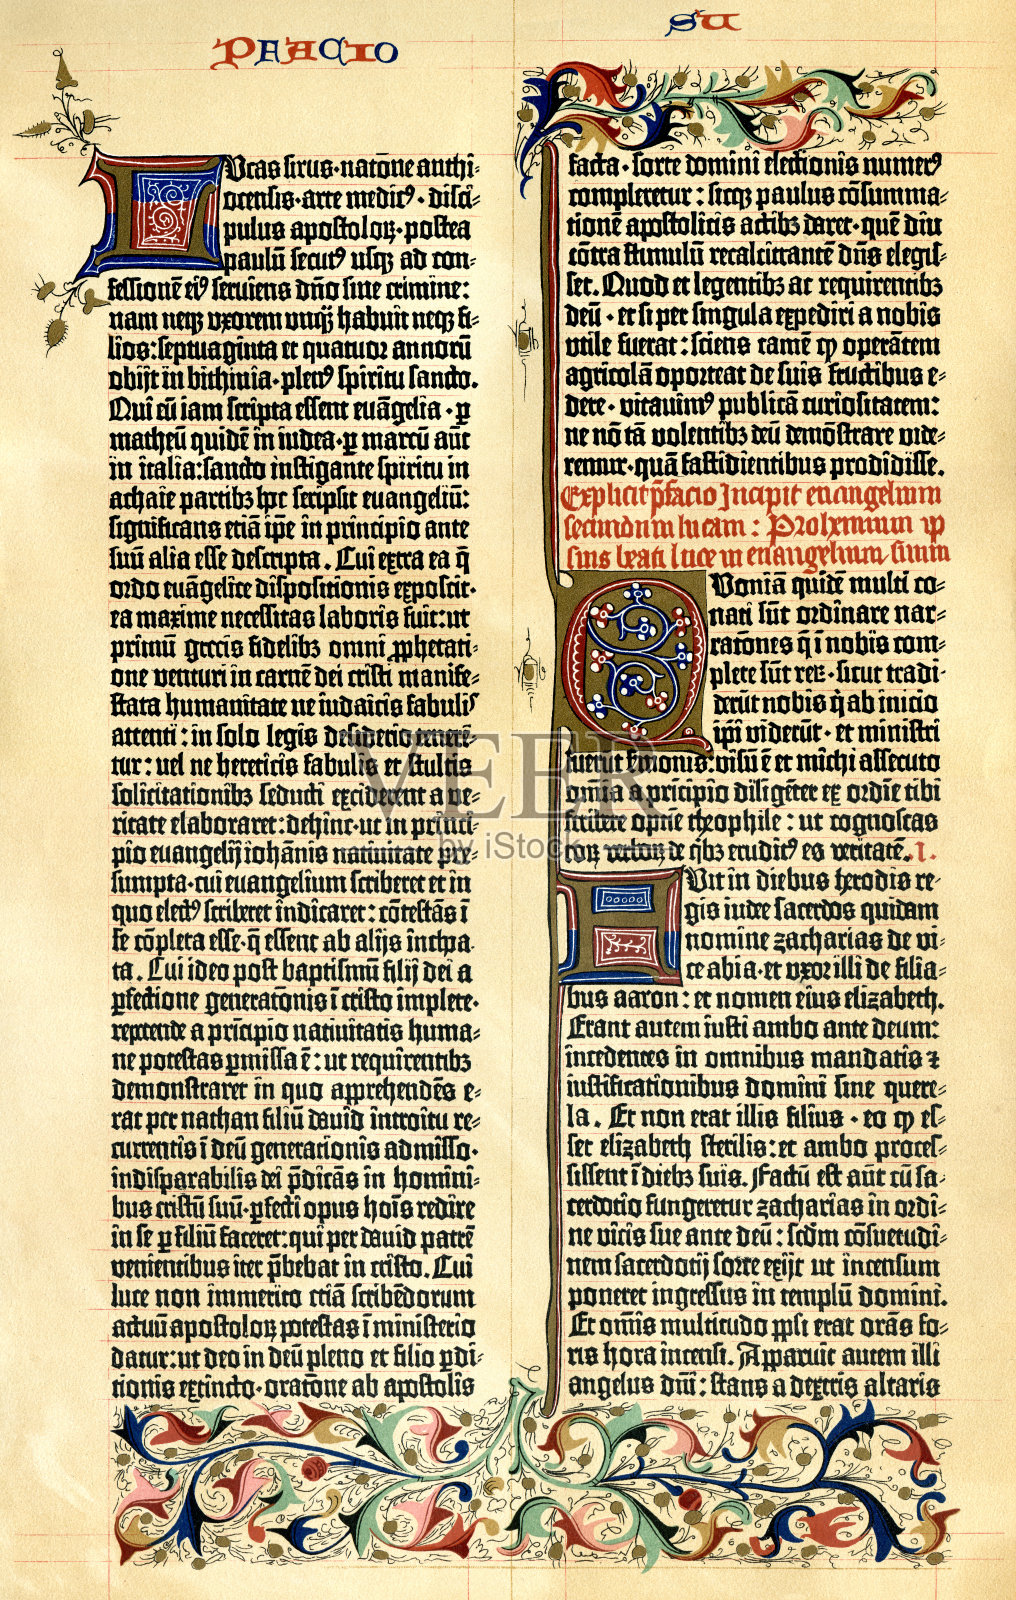 PFACIO
SU
Lucas sirus · natōne anthi-
ocensis · arte medicꝰ · disci-
pulus apostoloꝝ · postea
paulū secutꝰ usqꝫ ad con-
fessionē eiꝰ serviens dño sine crimine:
nam neqꝫ vxorem unqꝫ habuit neqꝫ fi-
lios: septuaginta et quatuor annorū
obijt in bithinia · plenꝰ spiritu sancto.
Qui cū iam scripta essent evāgelia · ꝑ
matheū quidē in iudea · ꝑ marcū aūt
in italia: sancto instigante spiritu in
achaie partibꝫ hoc scripsit euangeliū:
significans etiā ipē in principio ante
suū alia esse descripta. Cui extra ea q̄
ordo euāgelice dispositionis exposcit ·
ea maxime necessitas laboris fuit: ut
primū grecis fidelibꝫ omni ꝓphetati-
one venturi in carnē dei cristi manife-
stata humanitate ne iudaicis fabulis
attenti: in solo legis desiderio tenerē-
tur: uel ne hereticis fabulis et stultis
solicitationibꝫ seducti exciderent a ve-
ritate elaboraret: dehinc · ut in princi-
pio euangelij iohānis natiuitate pre-
sumpta · cui euangelium scriberet et in
quo electꝰ scriberet indicaret: cōtestās ī
se cōpleta esse · q̄ essent ab alijs inchoa-
ta. Cui ideo post baptismū filij dei a
ꝑfectione generatōnis ī cristo implete ·
repetende a prīcipio natiuitatis huma-
ne potestas ꝑmissa ē: ut requirentibꝫ
demonstraret in quo apprehendēs e-
rat per nathan filiū dauid introitu re-
currentis ī deū generationis admisso ·
indisparabilis dei p̄dicās in homini-
bus cristū suū · ꝑfecti opus hoīs redire
in se ꝑ filiū faceret: qui per dauid patrē
venientibus iter p̄bebat in cristo. Cui
luce non immerito etiā scribēdorum
actuū apostoloꝝ potestas ī ministerio
datur: ut deo in deū pleno et filio ꝑdi-
tionis extincto · oratōne ab apostolis
facta · sorte domini electionis numerꝰ
compleretur: sicqꝫ paulus cōsumma-
tionē apostolicis actibꝫ daret · quē diu
cōtra stimulū recalcitrantē dñs elegis-
set. Quod et legentibꝫ ac requirentibꝫ
deū · et si per singula expediri a nobis
vtile fuerat: sciens tamē ꝙ operātem
agricolā oporteat de suis fructibus e-
dere · vitauimꝰ publicā curiositatem:
ne nō tā volentibꝫ deū demōstrare vide-
remur · quā fastidientibus prodidisse.
Explicit p̄facio Incipit euangelium
secundum lucam: Prohemium ip
sius beati luce in euangelium suum
Quoniā quidē multi co-
nati sūt ordinare nar-
ratōnes q̄ ī nobis com-
plete sūt reꝝ · sicut tradi-
derūt nobis q̄ ab inicio
ip̄i viderūt · et ministri
fuerūt sermonis: visū ē et michi assecuto
omīa a prīcipio diligēter ex ordīe tibi
scribere optīe theophile: ut cognoscas
eoꝝ verboꝝ de qͥbꝫ eruditꝰ es veritatē. I.
Fuit in diebus herodis re-
gis iudee sacerdos quidam
nomine zacharias de vi-
ce abia · et vxor illi de filia-
bus aaron: et nomen eius elizabeth.
Erant autem iusti ambo ante deum:
incedentes in omnibus mandatis ⁊
iustificationibus domini sine quere-
la. Et non erat illis filius · eo ꝙ es-
set elizabeth sterilis: et ambo proces-
sissent ī diebꝫ suis. Factū est aūt cū sa-
cerdotio fungeretur zacharias in ordi-
ne vicis sue ante deū: scdm cōsuetudi-
nem sacerdotij sorte exijt ut incensum
poneret ingressus in templū domini.
Et om̄is multitudo ppli erat orās fo-
ris hora incensi. Apparuit autem illi
angelus dñi: stans a dextris altaris
VEER
by iStock